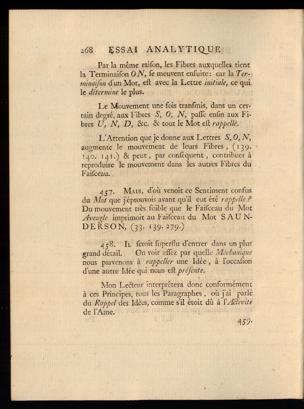 268 ESSAI ANALYTIQUE
Par la même raison, les Fibres auxquelles tient
la Terminaison ON, se meuvent ensuite: car la Ter-
minaison d'un Mot, est avec la Lettre initiale, ce qui
le détermine le plus.
Le Mouvement une fois transmis, dans un cer-
tain degré, aux Fibres S, O, N, passe enfin aux Fi-
bres U, N, D, &c. & tout le Mot est rappellé.
L'Attention que je donne aux Lettres S, O, N,
augmente le mouvement de leurs Fibres, (139.
140. 141.) & peut, par conséquent, contribuer à
reproduire le mouvement dans les autres Fibres du
Faisceau.
457. MAIS, d'où venoit ce Sentiment confus
du Mot que j'éprouvois avant qu'il eut été rappellé?
Du mouvement très foible que le Faisceau du Mot
Aveugle imprimoit au Faisceau du Mot SAUN-
DERSON, (33. 139. 279.)
458. IL seroit superflu d'entrer dans un plus
grand détail. On voit assez par quelle Méchanique
nous parvenons à rappeller une Idée, à l'occasion
d'une autre Idée qui nous est présente.
Mon Lecteur interprètera donc conformément
à ces Principes, tous les Paragraphes, où j'ai parlé
du Rappel des Idées, comme s'il étoit dû à l'Activité
de l'Ame.
459.